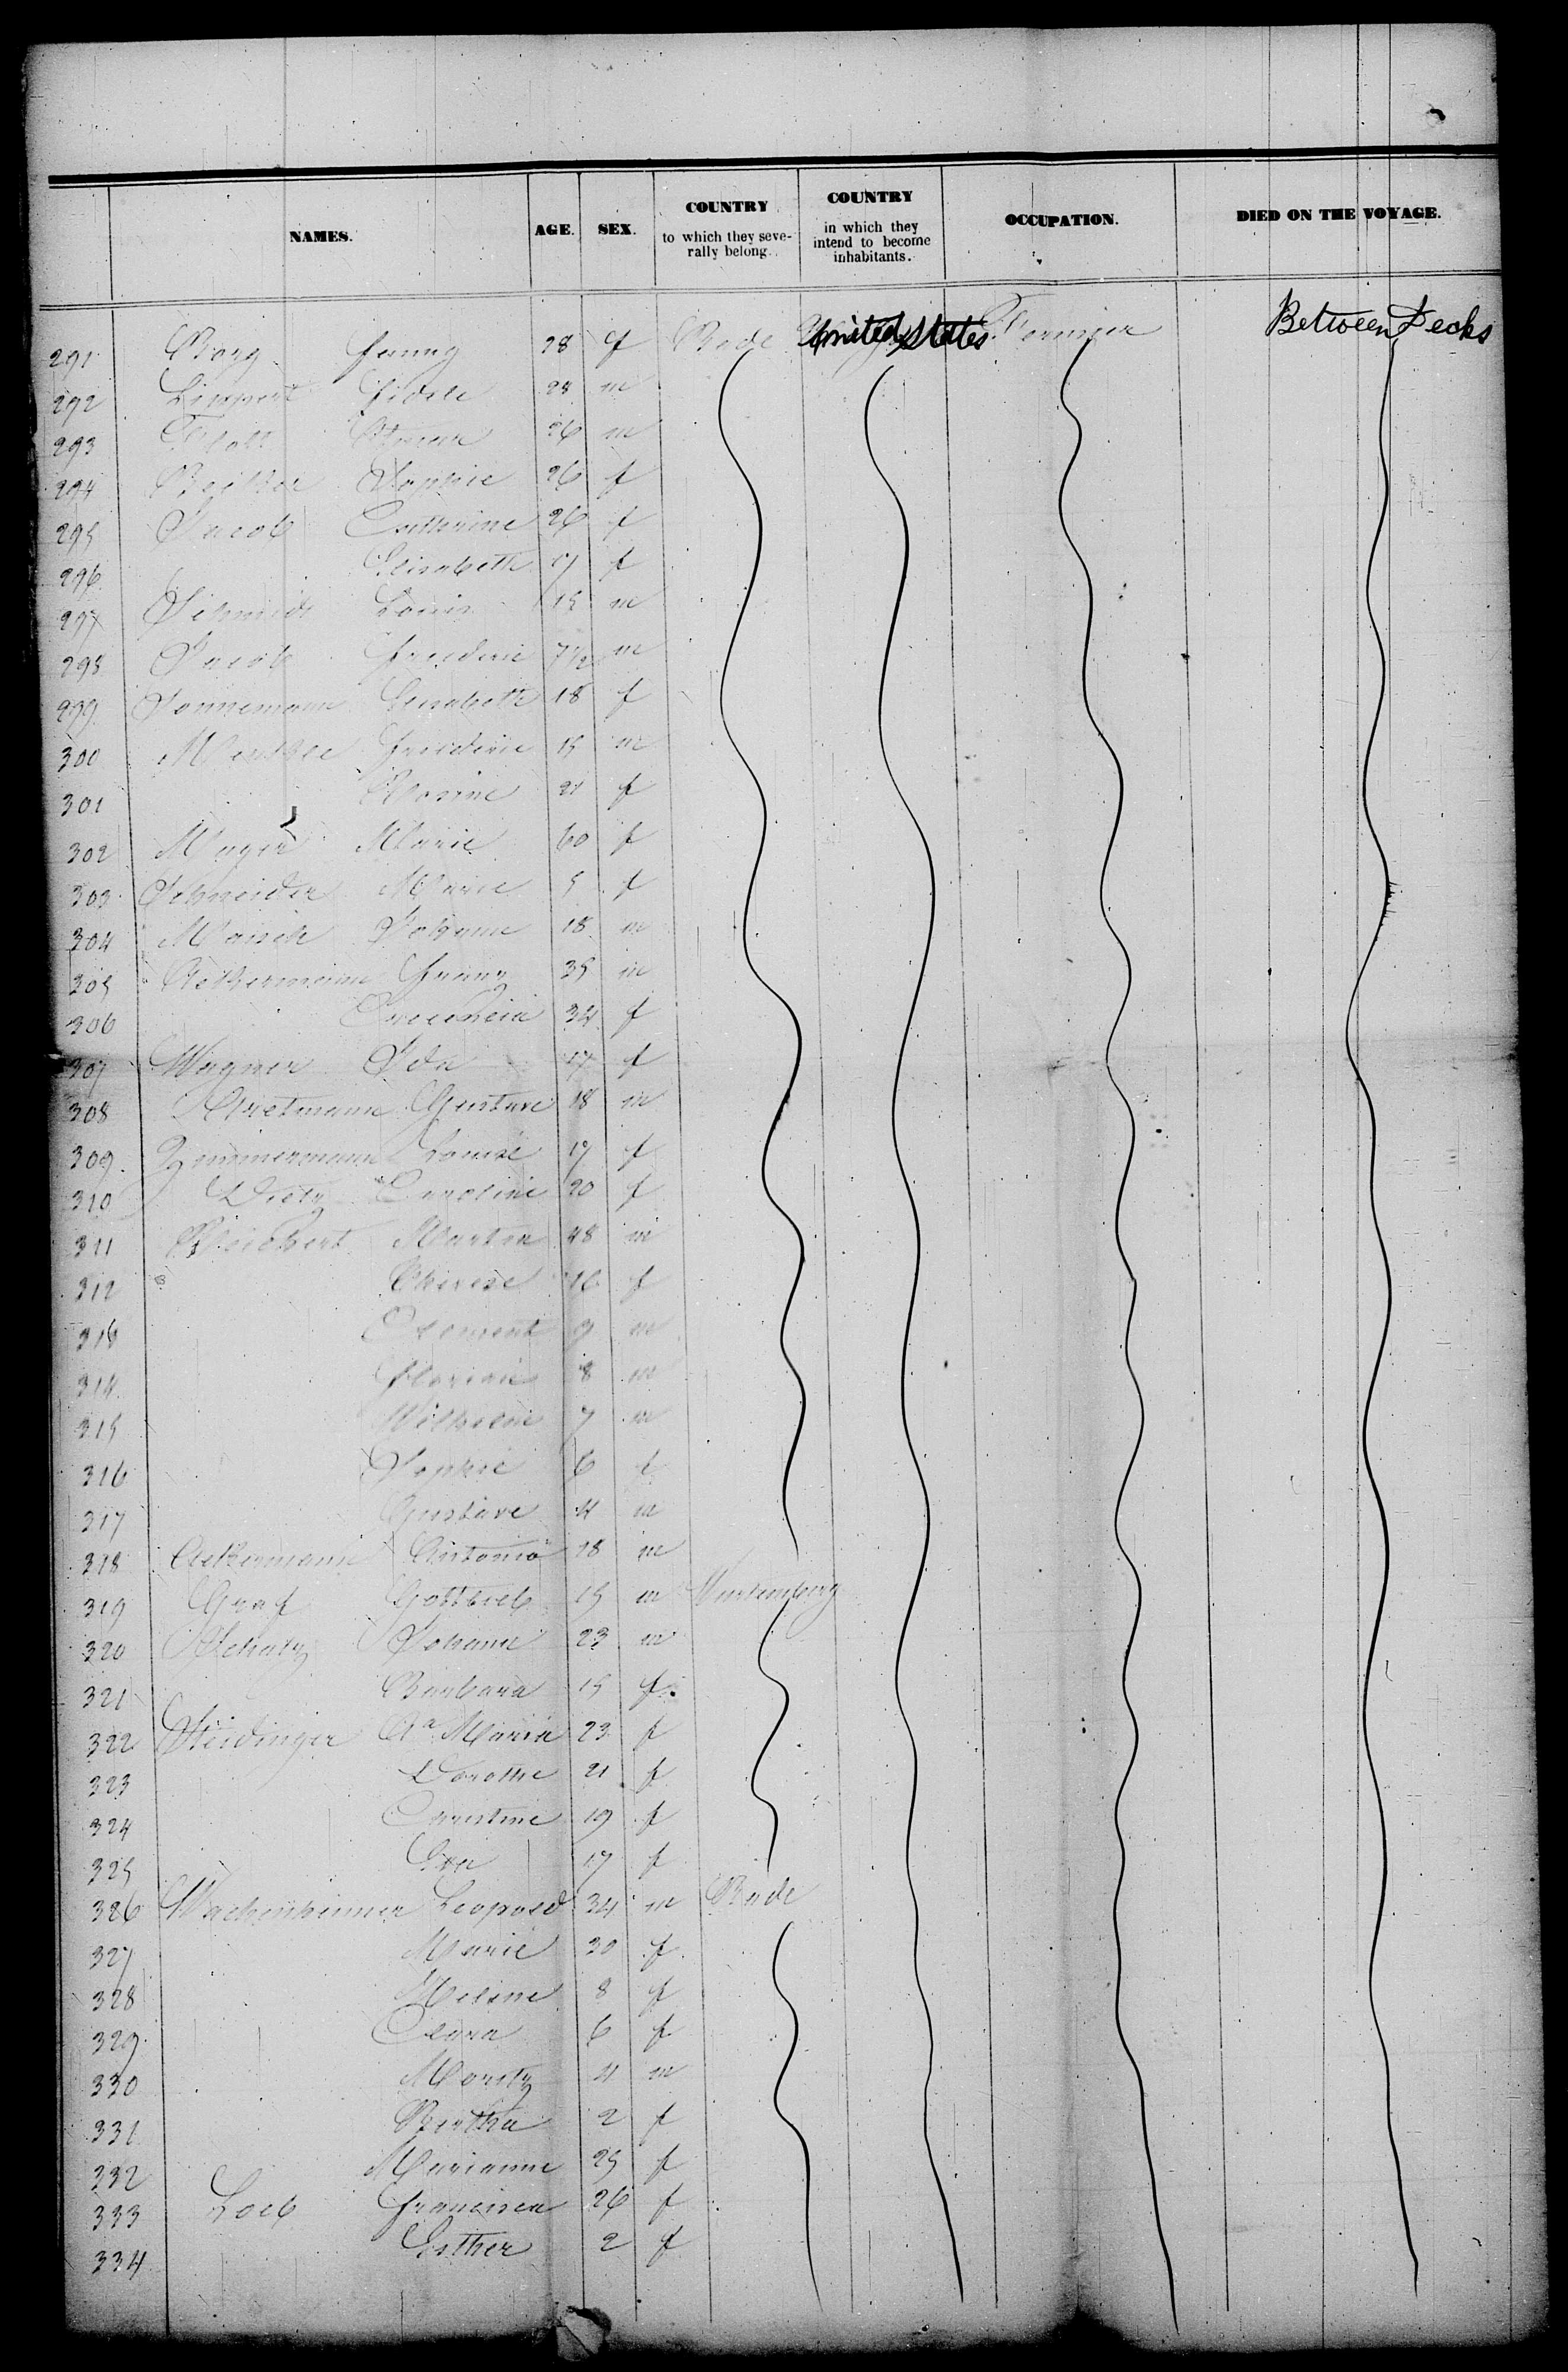 NAMES. AGE. SEX. COUNTRY to which they severally belong. COUNTRY in which they intend to become inhabitants. OCCUPATION. DIED ON THE VOYAGE.
291 Borg fanny 28 f Bade United States Between Decks
292 Lippert fidele 28 m
293 26 m
294 Sophie 26 f
295 Jacob Catherine 26 f
296 Elisabeth 17 f
297 Schmidt Louis 15 m
298 Jacob frederic 7 1/2 m
299 Sonnemann Elisabeth 18 f
300 frederic 15 m
301 Rosine 21 f
302 Mager Marie 60 f
303 Schneider Marie 5 f
304 Maisch Johann 18 m
305 Ackermann franz 35 m
306 34 f
307 Wagner Ida 17 f
308 Gustave 18 m
309 Zimmermann Louise 17 f
310 Dietz Caroline 20 f
311 Martin 48 m
312 Therese 16 f
313 Clement 9 m
314 8 m
315 Wilhelm 7 m
316 Sophie 6 f
317 Gustave 4 m
318 Ackermann Antonio 18 m
319 Graf Gottlieb 15 m Wurtemberg
320 Schatz Johann 23 m
321 Barbara 15 f
322 Steidinger Aª Maria 23 f
323 Dorothe 21 f
324 Christine 19 f
325 Eva 17 f
326 Wachenheimer Leopold 34 m Bade
327 Marie 30 f
328 Meline 8 f
329 Clara 6 f
330 Moritz 4 m
331 Bertha 2 f
332 Marianne 25 f
333 Loeb francisca 26 f
334 Esther 2 f